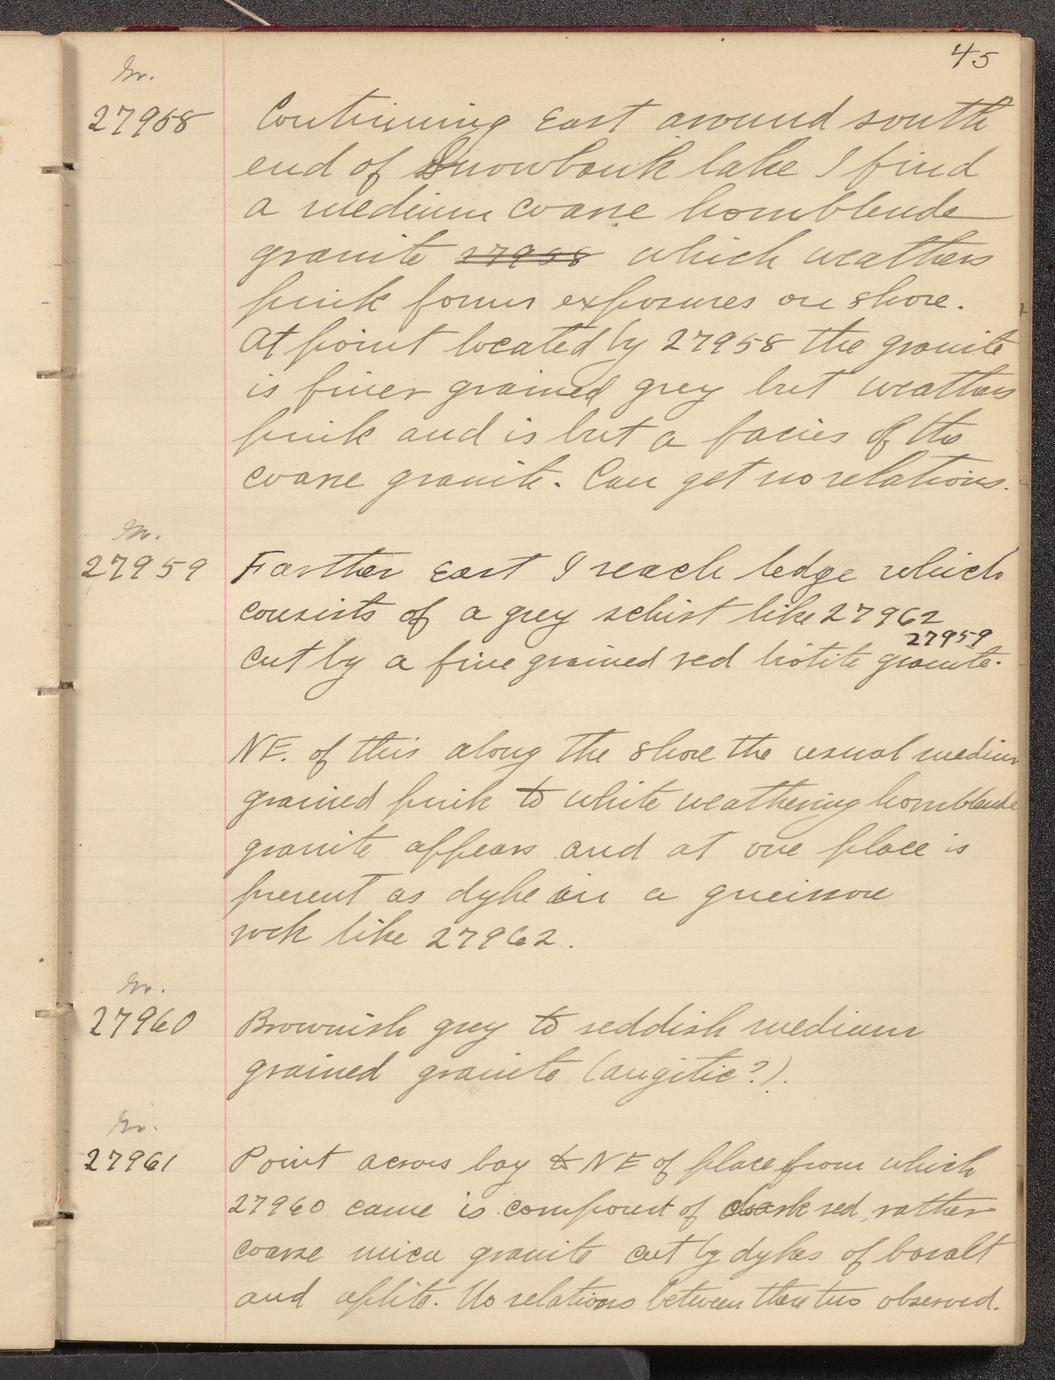 45
Gr.
27958 Continuing East around south
end of Snowbank lake I find
a medium coarse hornblende
granite 27958 which weathers
pink forms exposures on shore.
At point located by 27958 the granite
is finer grained grey but weathers
pink and is but a facies of the
coarse granite. Can get no relations.
Gr.
27959 Farther East I reach ledge which
consists of a grey schist like 27962
27959
cut by a fine grained red biotite granite.
NE. of this along the shore the usual medium
grained pink to white weathering hornblende
granite appears and at one place is
present as dyke in a gneissose
rock like 27962.
Gr.
27960 Brownish grey to reddish medium
grained granite (augitic?).
Gr.
27961 Point across bay & NE of place from which
27960 came is composed of dark red, rather
coarse mica granite cut by dykes of basalt
and aplite. No relations between these two observed.